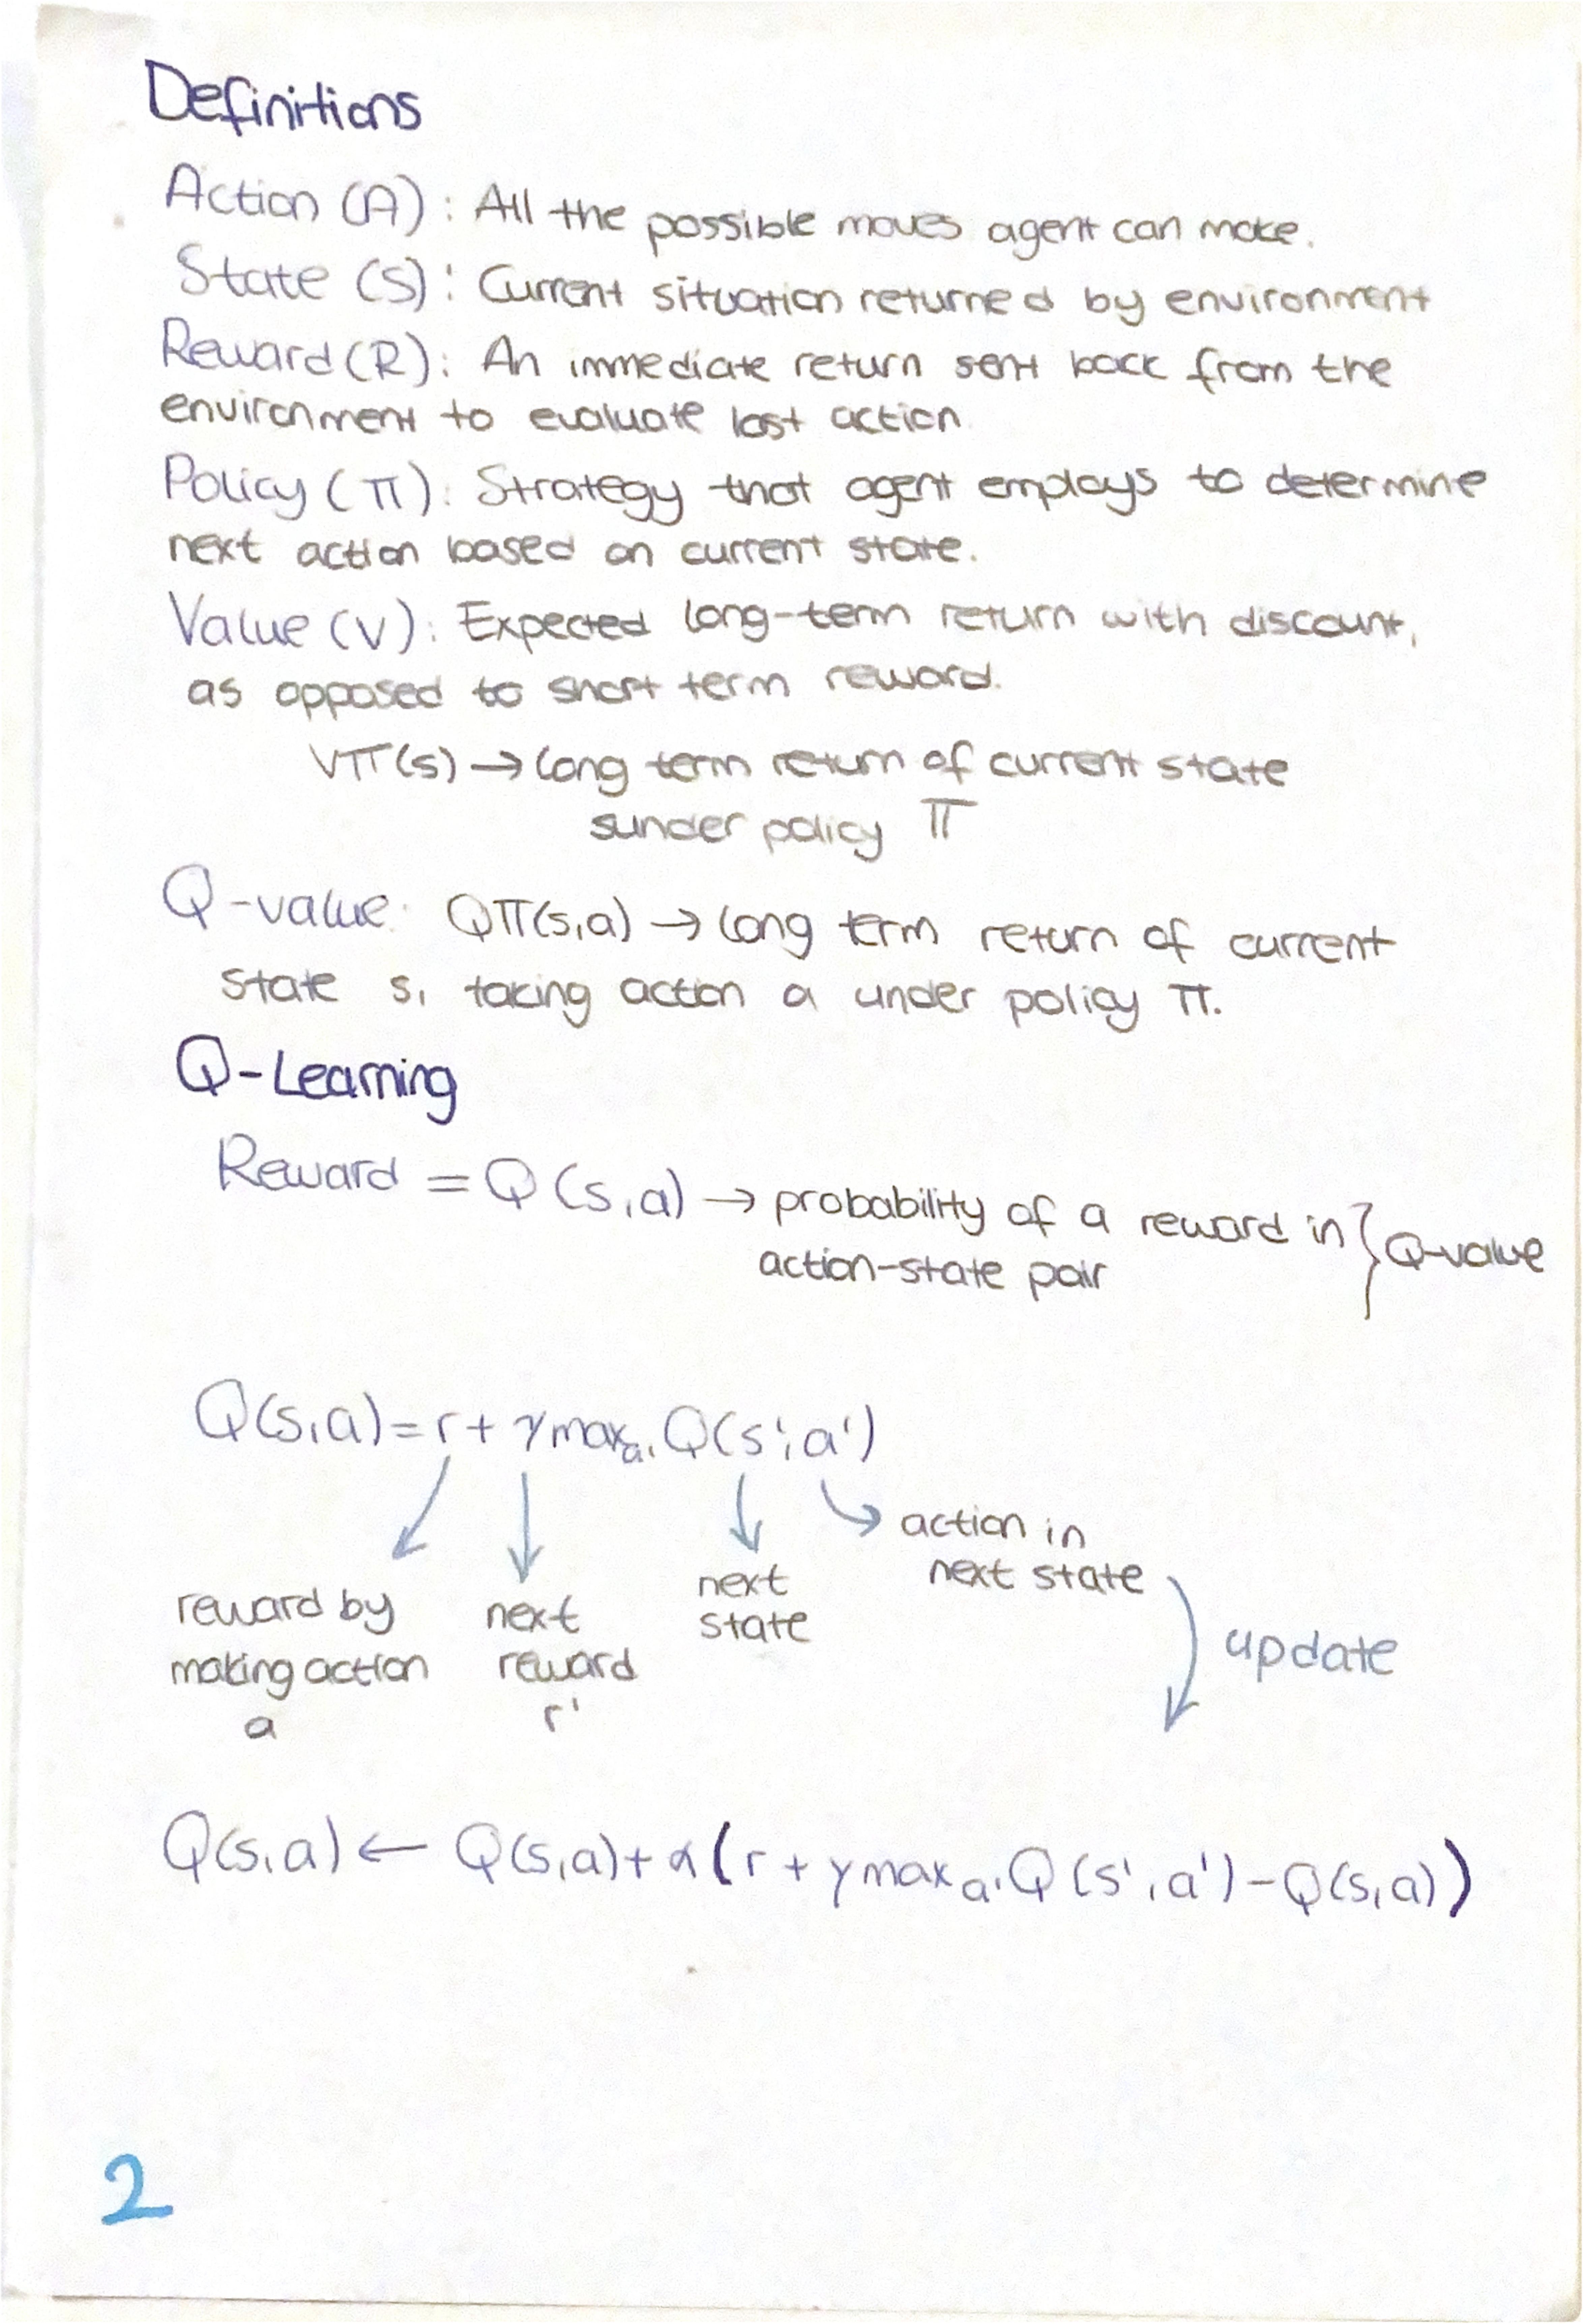 Definitions
Action (A): All the possible moves agent can make.
State (S): Current situation returned by environment
Reward (R): An immediate return sent back from the
environment to evaluate last action
Policy (π): Strategy that agent employs to determine
next action based on current state.
Value (V): Expected long-term return with discount,
as opposed to short term reward.
Vπ(s) → long term return of current state
sunder policy π
Q-value: Qπ(s,a) → long term return of current
state s, taking action a under policy π.
Q-Learning
Reward = Q(s,a) → probability of a reward in } Q-value
action-state pair
Q(s,a) = r + γ max a' Q(s',a')
action in
next state
next
state
reward by
making action
a
next
reward
r'
update
Q(s,a) ← Q(s,a) + α(r + γ max a' Q(s',a') - Q(s,a))
2